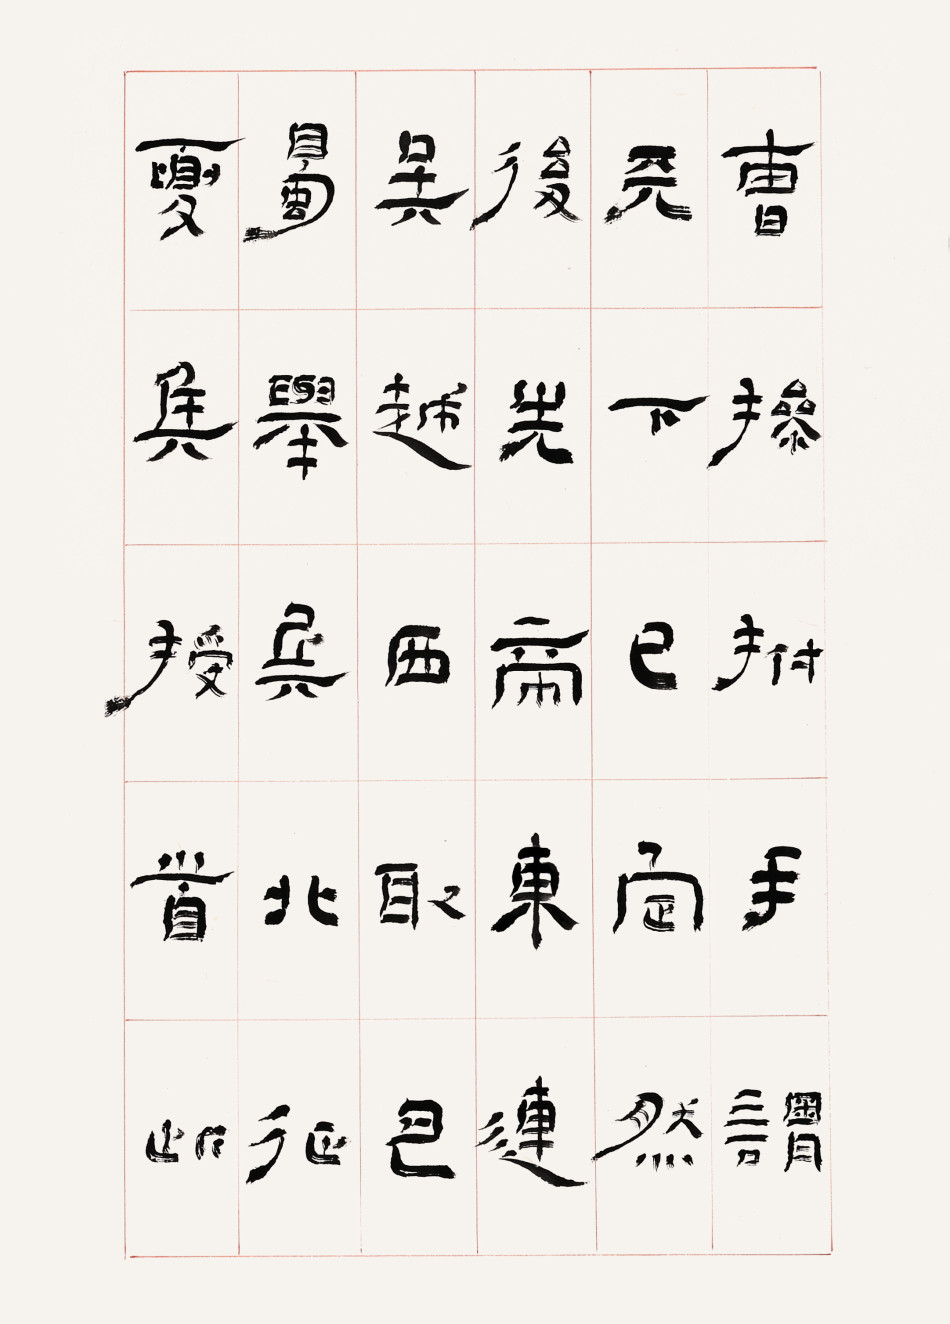 曹操拊手謂
天下已定然
後先帝東連
吳越西取巴
蜀舉兵北征
夏侯授首此